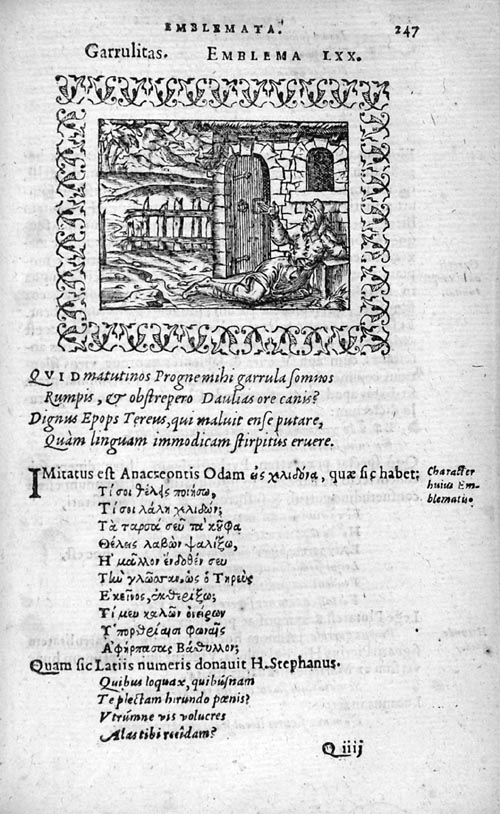 EMBLEMATA. 247
Garrulitas. EMBLEMA LXX.
QVID matutinos Progne mihi garrula somnos
Rumpis, & obstrepero Daulias ore canis?
Dignus Epops Tereus, qui maluit ense putare,
Quàm linguam immodicam stirpitus eruere.
IMitatus est Anacreontis Odam εἰς χελιδόνα, quæ sic habet:
Character huius Emblematis.
Τί σοι θέλεις ποιήσω,
Τί σοι λάλη χελιδών;
Τὰ ταρσά σευ τὰ κοῦφα
Θέλεις λαβὼν ψαλίξω,
Ἢ μᾶλλον ἔνδοθέν σευ
Τὴν γλῶσσαν, ὡς ὁ Τηρεὺς
Ἐκεῖνος, ἐκθερίξω;
Τί μευ καλῶν ὀνείρων
Ὑπορθρίαισι φωναῖς
Ἀφήρπασας Βάθυλλον;
Quam sic Latiis numeris donavit H. Stephanus.
Quibus loquax, quibúsnam
Te plectam hirundo pœnis?
Vtrúmne vis volucres
Alas tibi recidam?
Q iiij